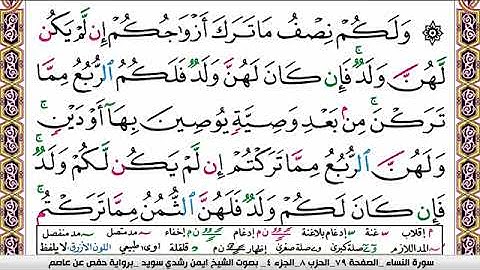 ۞ وَلَكُمْ نِصْفُ مَا تَرَكَ أَزْوَٰجُكُمْ إِن لَّمْ يَكُن
لَّهُنَّ وَلَدٌ ۚ فَإِن كَانَ لَهُنَّ وَلَدٌ فَلَكُمُ الرُّبُعُ مِمَّا
تَرَكْنَ ۚ مِنۢ بَعْدِ وَصِيَّةٍ يُوصِينَ بِهَآ أَوْ دَيْنٍ ۚ
وَلَهُنَّ الرُّبُعُ مِمَّا تَرَكْتُمْ إِن لَّمْ يَكُن لَّكُمْ وَلَدٌ ۚ
فَإِن كَانَ لَكُمْ وَلَدٌ فَلَهُنَّ الثُّمُنُ مِمَّا تَرَكْتُم ۚ
م إقلاب غنة إدغام بلاغنة إدغام إخفاء مد متصل مد منفصل
المد اللازم صلة كبرى صلة صغرى إظهار قلقلة طبيعي اللون الأزرق لا يلفظ
سورة النساء _ الصفحة ٧٩_ الحزب ٨_ الجزء ٤_ بصوت الشيخ ايمن رشدي سويد _ برواية حفص عن عاصم